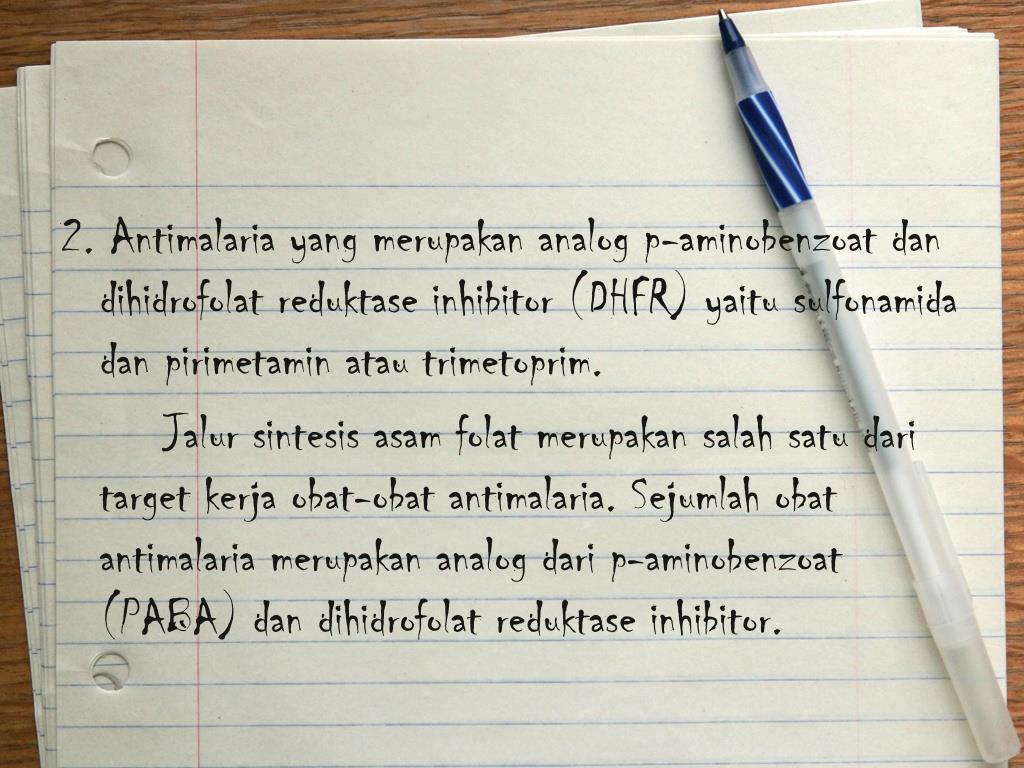 2. Antimalaria yang merupakan analog p-aminobenzoat dan
dihidrofolat reduktase inhibitor (DHFR) yaitu sulfonamida
dan pirimetamin atau trimetoprim.
Jalur sintesis asam folat merupakan salah satu dari
target kerja obat-obat antimalaria. Sejumlah obat
antimalaria merupakan analog dari p-aminobenzoat
(PABA) dan dihidrofolat reduktase inhibitor.